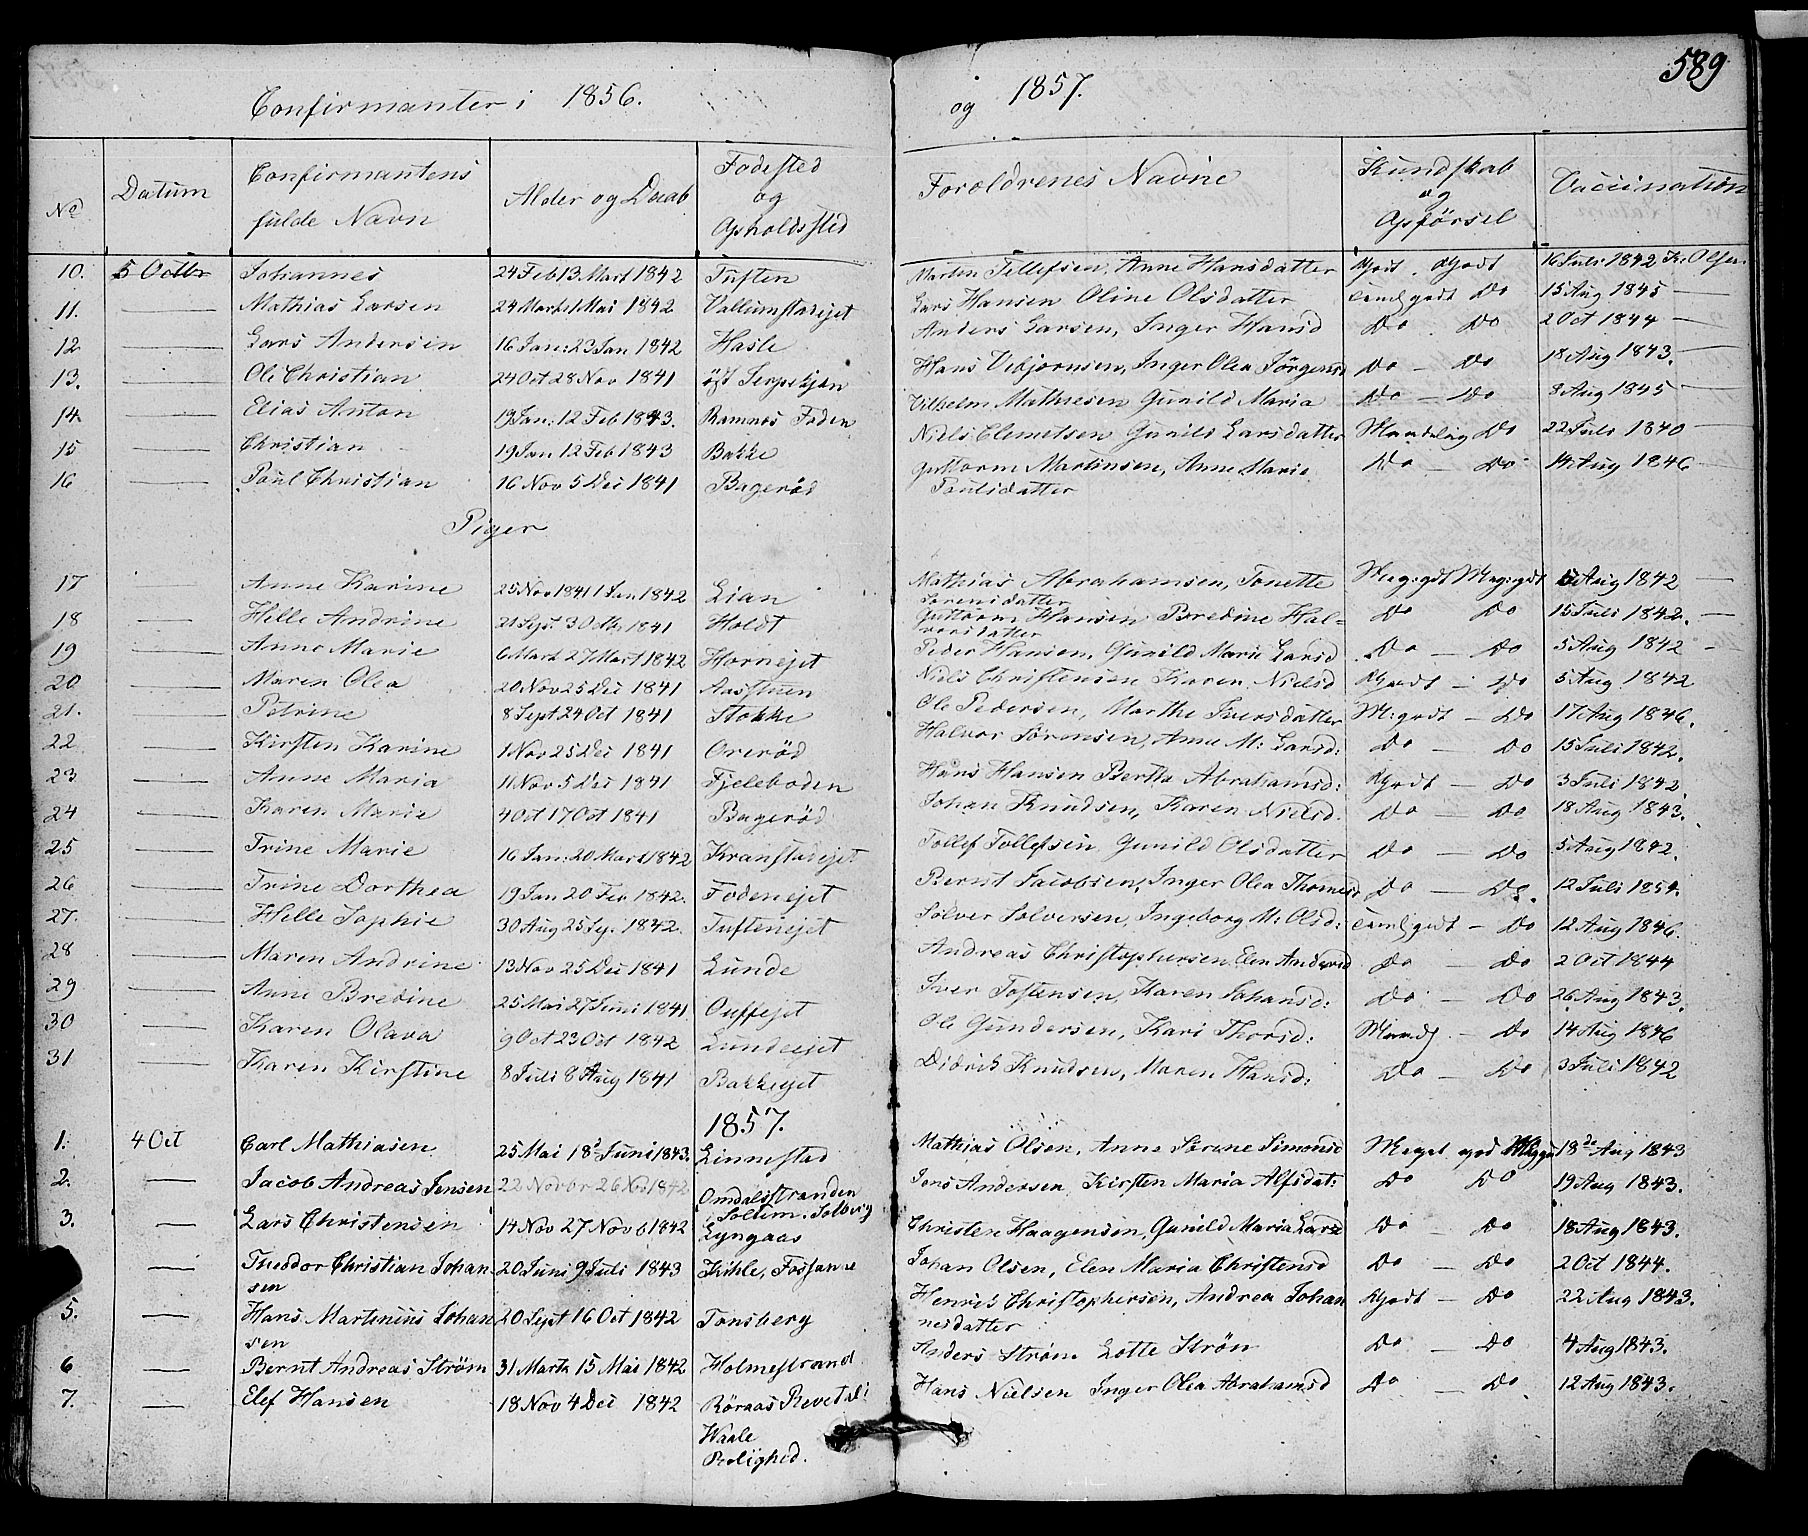 589
Confirmanter i 1856. og 1857.
No Datum Confirmantens fulde Navn Alder og Daab Fødested og Opholdssted Forældrenes Navne Kundskab og Opførsel Vaccination
10. 5 Octbr Johannes 24 Feb 13 Mart 1842 Tuften Marten Tellefsen, Anne Hansdatter Godt. Godt 16 Juli 1842 Kr. Olsen
11. — Mathias Larsen 24 Mart 1 Mai 1842 Vallumstadejet Lars Hansen Oline Olsdatter Do 15 Aug 1845 —
12 — Lars Andersen 16 Jan: 23 Jan 1842 Hasle Anders Larsen, Inger Hansd Do. Do 2 Oct 1844 —
13. — Ole Christian 24 Oct 28 Nov 1841 Hans Vebjørnsen, Inger Olea Jørgensd Do — Do 18 Aug 1843. —
14 — Elias Anton 19 Jan: 12 Feb 1843. Ramnes Foden Vilhelm Mathiesen Gunild Maria Do — Do 8 Aug 1845 —
15 — Christian 19 Jan 12 Feb 1843 Bakke Niels Clemetsen Gunild Larsdatter Maadelig Do 22 Juli 1840 —
16 — Poul Christian 16 Nov 5 Dec 1841 Bagerød Guttorm Martinsen, Anne Marie Do — Do 14 Aug 1846 —
Poulsdatter
Piger
17 — Anne Karine 25 Nov 1841 1 Jan 1842 Lian Mathias Abrahamsen, Tonette Meg: gdt Meg: gdt 5 Aug 1842 —
Sørensdatter
18 — Helle Andrine 21 Sept 3 Octb. 1841 Holdt Guttorm Hansen Bredine Hal= Do Do 15 Juli 1842. —
vorsdatter
19 — Anne Marie 6 Mart 27 Mart 1842 Hornejet Peder Hansen, Gunild Marie Larsd Do — Do 5 Aug 1842 —
20 — Maren Olea 20 Nov 25 Dec 1841 Aasstuen Niels Christensen Karen Nielsd Godt — Do 5 Aug 1842
21. — Petrine 8 Sept 24 Oct 1841 Stokke Ole Pedersen, Marthe Iversdatter M: godt — Do 17 Aug 1846.
22 — Kirsten Karine 1 Nov 25 Dec 1841 Orerød Halvor Sørensen, Anne M: Larsd: Do — Do 15 Juli 1842.
23 — Anne Maria 11 Nov 5 Dec 1841 Fjeleboden Hans Hansen Bertha Abrahamsd: Godt — Do 3 Juli 1842.
24 — Karen Marie 4 Oct 17 Oct 1841 Bagerød Johan Knudsen, Karen Nielsd. Do — Do 18 Aug 1843.
25 — Trine Marie 16 Jan: 20 Mart 1842 Kranstadejet Tollef Tollefsen Gunild Olsdatter Do — Do 5 Aug 1842.
26 — Trine Dorthea 19 Jan 20 Fer 1842. Fodenejet Bernt Jacobsen, Inger Olea Thomesd Do — Do. 12 Juli 1854.
27. — Helle Sophie 30 Aug 25 Sep. 1842. Tuftenejet Sølver Solversen, Ingeborg M: Olsd: Temlgodt — Do 12 Aug 1846.
28 — Maren Andrine 13 Nov 25 Dec 1841 Lunde Andreas Christophersen Elen Andersd Do — Do 2 Oct 1844
29 — Anne Bredine 25 Mai 27 Juni 1841 Ouffejet Iver Tostensen, Karen Johansd: Do — Do 26 Aug 1843.
30 — Karen Olava 9 Oct 23 Oct 1842 Lundeejet Ole Gundersen, Kari Thorsd: Maadl. — Do 14 Aug 1846
31 — Karen Kirstine 8 Juli 8 Aug 1841 Bakkejet Didrik Knudsen, Maren Hansd: Do — Do 3 Juli 1842
1857.
1. 4 Oct Carl Mathiasen 25 Mai 18 Juni 1843. Linnestad Mathias Olsen, Anne Sørine Simonsd Meget god Meget 18de Aug 1843
2. — Jacob Andreas Jensen 22 Novbr 26 Nov 1842 Omdalsstranden Jens Andersen Kirsten Maria Alfsdat: Do Do 19 Aug 1843.
Soltem. Solberg
3. — Lars Christensen 14 Nov 27 Nov 1842 Lyngaas Christen Haagensen, Gunild Maria Larsd Do — Do 18 Aug 1843.
— Theodor Christian Johan 20 Juni 9 Juli 1843 Kihle, Fossane Johan Olsen, Elen Maria Christensd Do — Do 2 Oct 1844.
sen
5. — Hans Martinius Johan 20 Sept 16 Oct 1842 Tønsberg Henrik Christophersen, Andrea Johan Godt — Do 22 Aug 1843.
sen nesdatter
6 — Bernt Andreas Strøm 31 Marts 15 Mai 1842 Holmestrand Anders Strøm Lotte Strøm Do — Do 4 Aug 1843.
7. — Elef Hansen 18 Nov 4 Dec 1842 Røraas Revetal Hans Nielsen Inger Olea Abrahamsd Do — Do 12 Aug 1843.
Waale